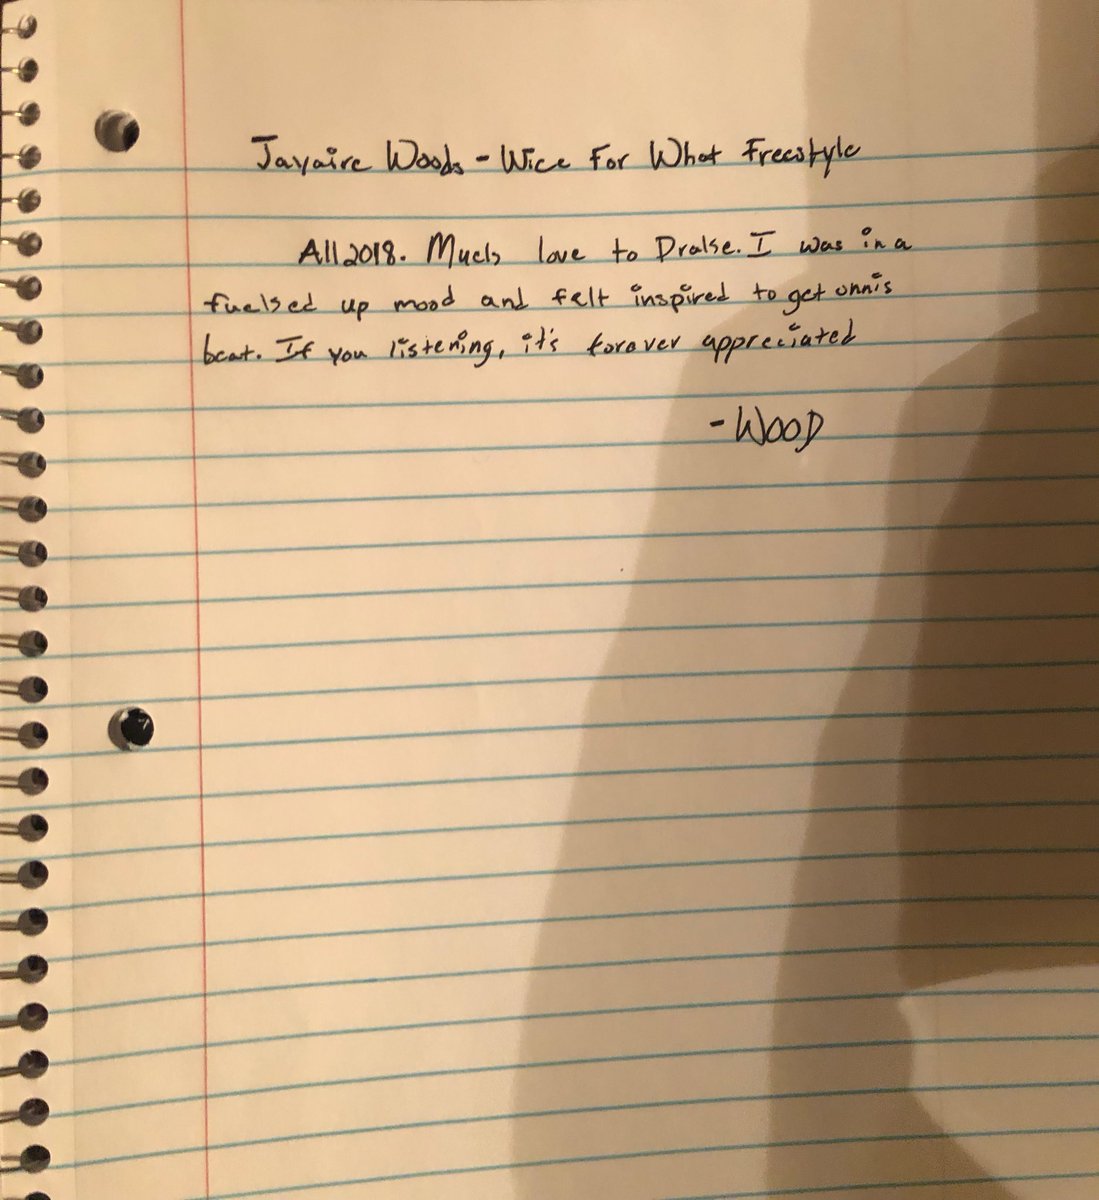 Jayaire Woods - Nice For What Freestyle
All 2018. Much love to Drake. I was in a
fucked up mood and felt inspired to get onnis
beat. If you listening, it's forever appreciated
- WOOD